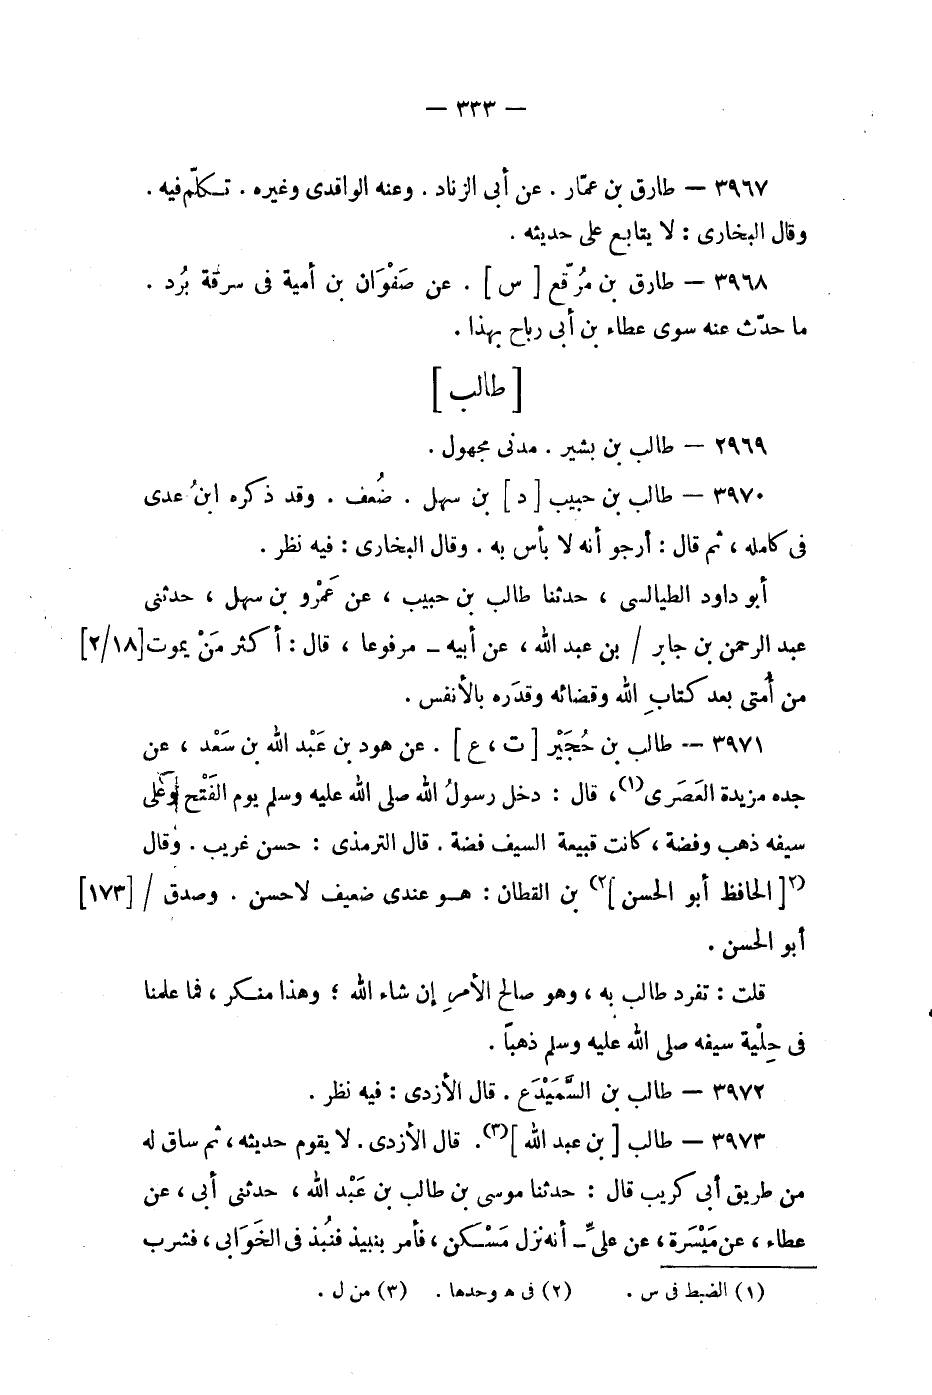 — ٣٣٣ —
٣٩٦٧ — طارق بن عمّار . عن أبى الزناد . وعنه الواقدى وغيره . تـكلّم فيه .
وقال البخارى : لا يتابع على حديثه .
٣٩٦٨ — طارق بن مُرَقّع [ س ] . عن صَفْوَان بن أمية فى سرقة بُرد .
ما حدّث عنه سوى عطاء بن أبى رباح بهذا .
[ طالب ]
٢٩٦٩ — طالب بن بشير . مدنى مجهول .
٣٩٧٠ — طالب بن حبيب [ د ] بن سهل . ضُعف . وقد ذكره ابنُ عدى
فى كامله ، ثم قال : أرجو أنه لا بأس به . وقال البخارى : فيه نظر .
أبو داود الطيالسى ، حدثنا طالب بن حبيب ، عن عَمْرو بن سهل ، حدثنى
عبد الرحمن بن جابر / بن عبد الله ، عن أبيه ـ مرفوعا ، قال : أكثر مَنْ يموت [٢/١٨]
من أُمتى بعد كتابِ الله وقضائه وقدَره بالأنفس .
٣٩٧١ — طالب بن حُجَيْر [ ت ، ع ] . عن هود بن عَبْد الله بن سَعْد ، عن
جده مزيدة العَصَرى(١)، قال : دخل رسولُ الله صلى الله عليه وسلم يوم الفَتْح وعَلَى
سيفه ذهب وفضة ، كانت قبيعة السيف فضة . قال الترمذى : حسن غريب . وقال
(٢[ الحافظ أبو الحسن ]٢) بن القطان : هـو عندى ضعيف لاحسن . وصدق / [١٧٣]
أبو الحسن .
قلت : تفرد طالب به ، وهو صالح الأمرِ إن شاء الله ؛ وهذا منـكر ، فما علمنا
فى حِلْية سيفه صلى الله عليه وسلم ذهباً .
٣٩٧٢ — طالب بن السَّمَيْدَع . قال الأزدى : فيه نظر .
٣٩٧٣ — طالب [ بن عبد الله ](٣). قال الأزدى . لا يقوم حديثه ، ثم ساق له
من طريق أبى كريب قال : حدثنا موسى بن طالب بن عَبْد الله ، حدثنى أبى ، عن
عطاء ، عن مَيْسَرة ، عن علىّ ـ أنه نزل مَسْـكن ، فأمر بنبيذ فنُبذ فى الخَوَابى ، فشرب
(١) الضبط فى س . (٢) فى ه وحدها . (٣) من ل .